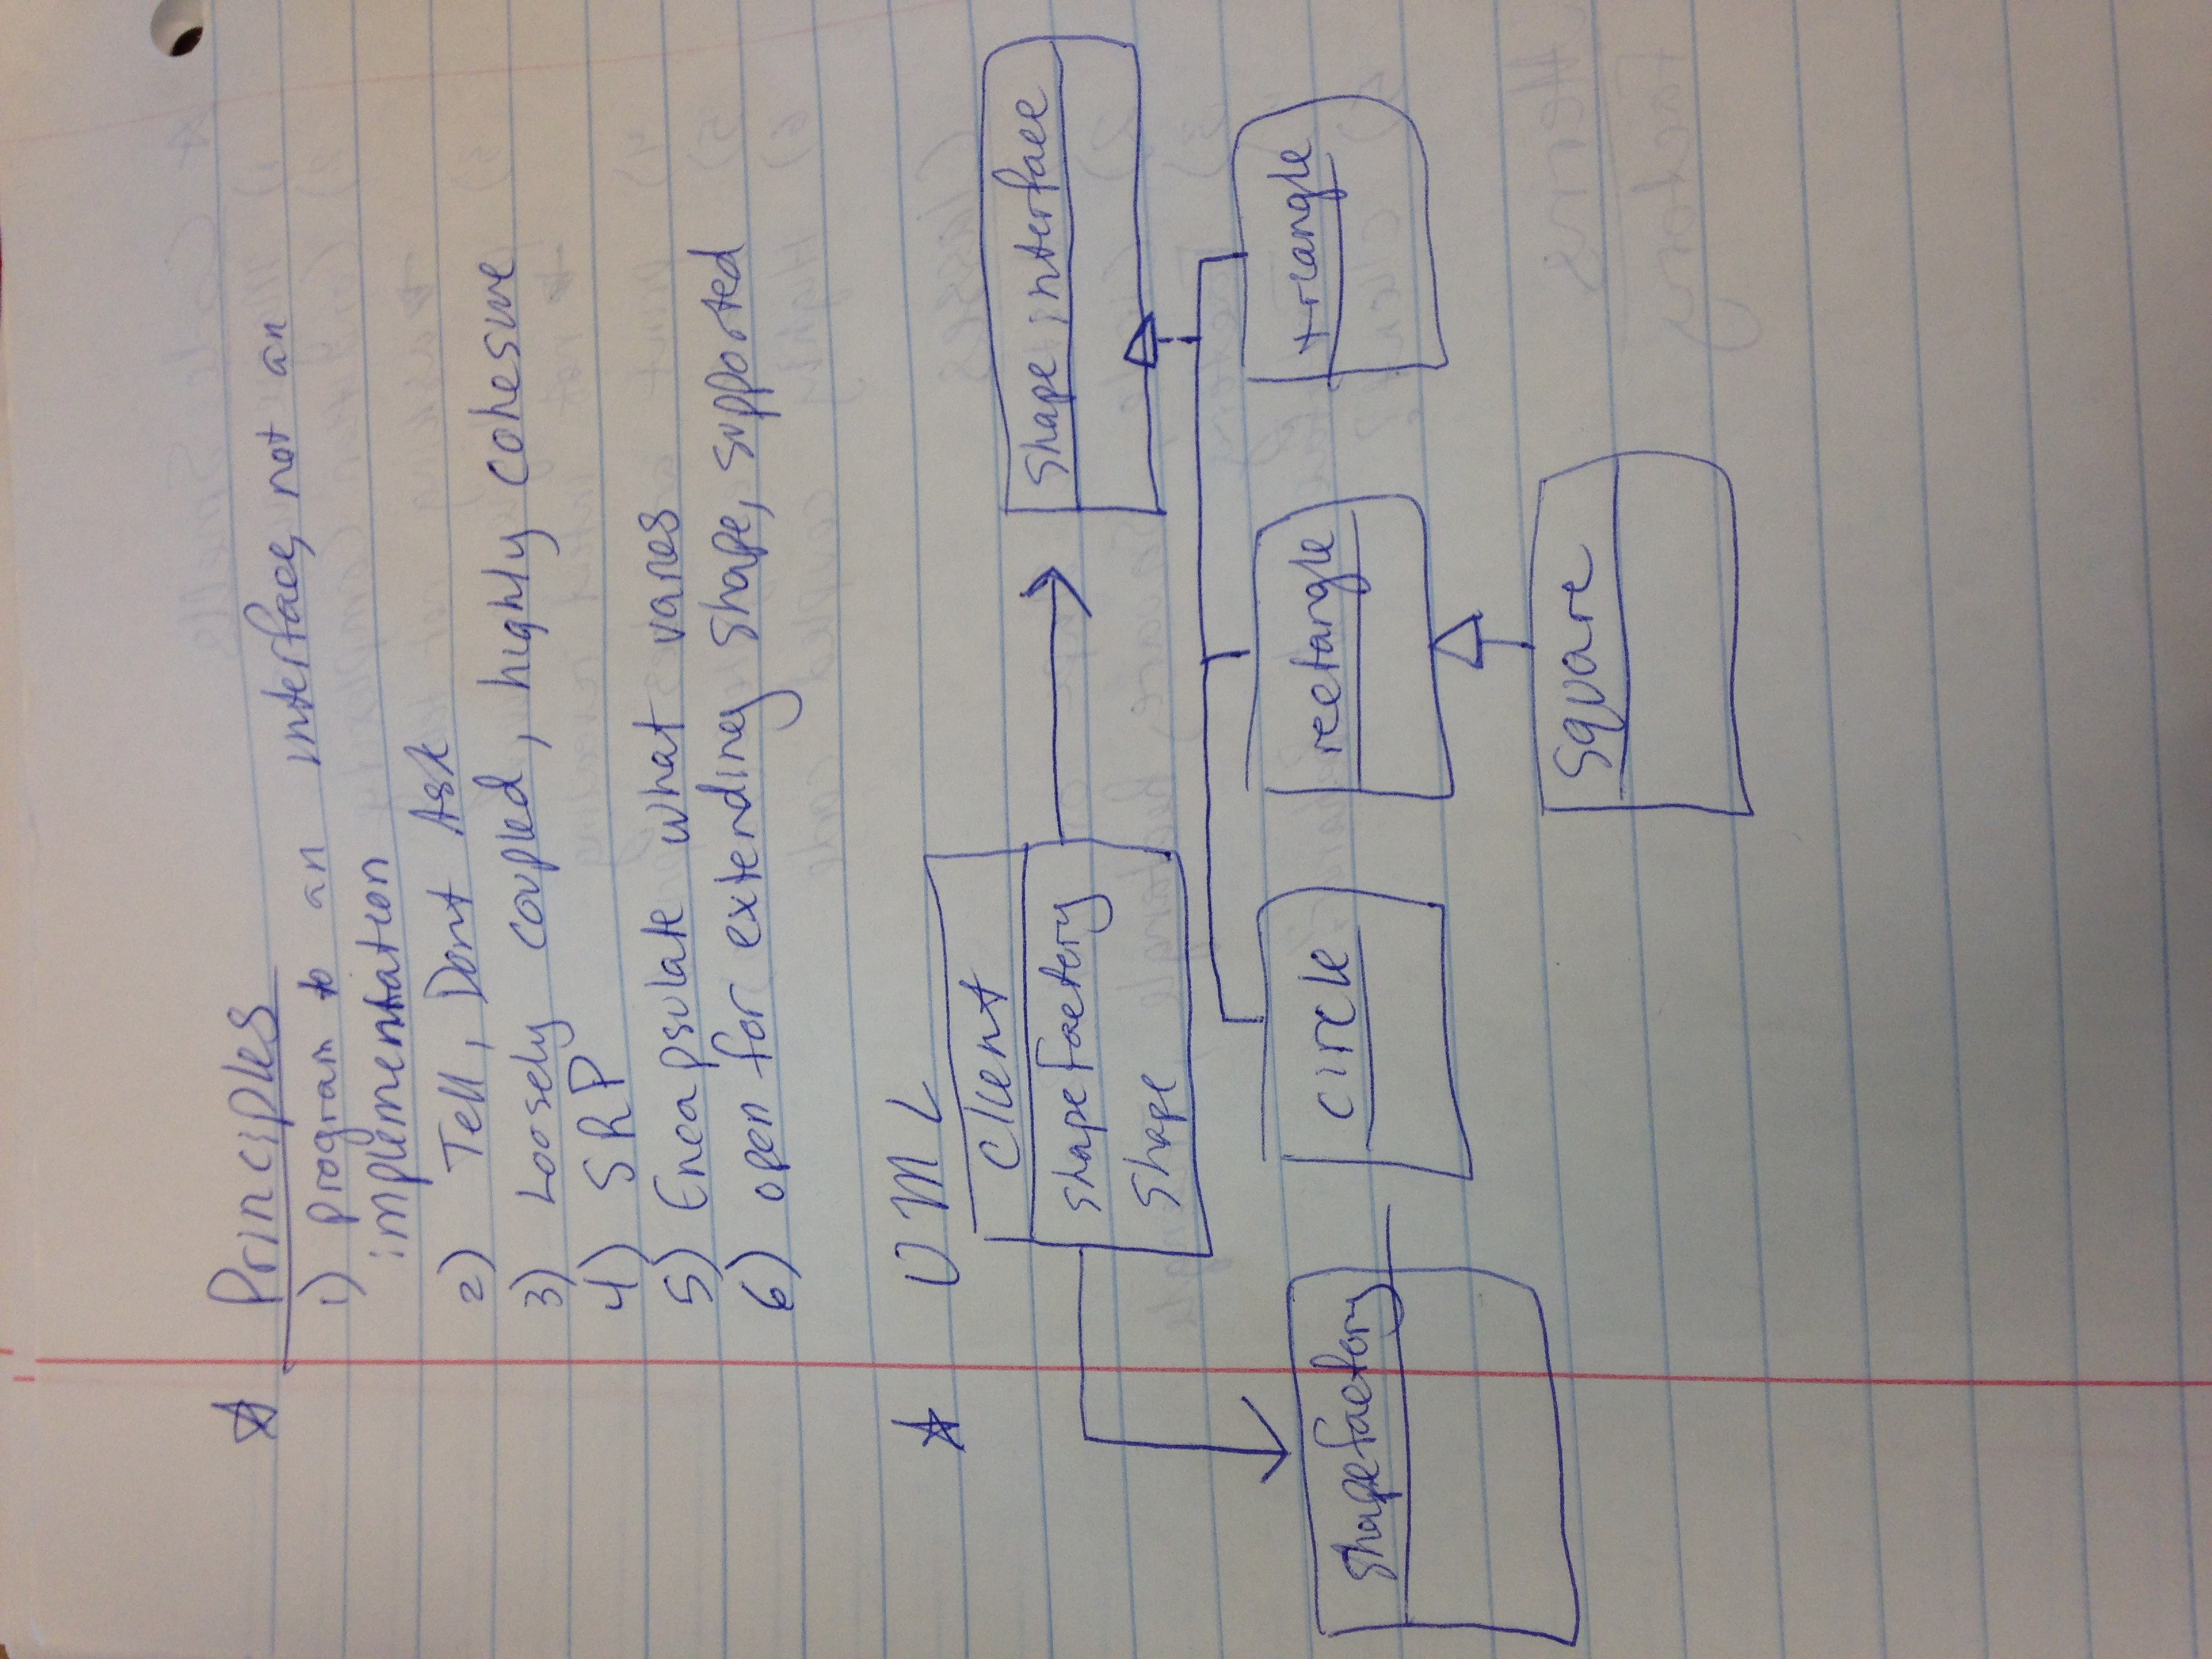 Principles
1) program to an interface, not an
implementation
2) Tell, Dont Ask
3) Loosely coupled, highly cohesive
4) SRP
5) Encapsulate what varies
6) open for extending shape, supported
UML
client
shapefactory
shape
shape interface
shapefactory
circle
rectangle
triangle
square